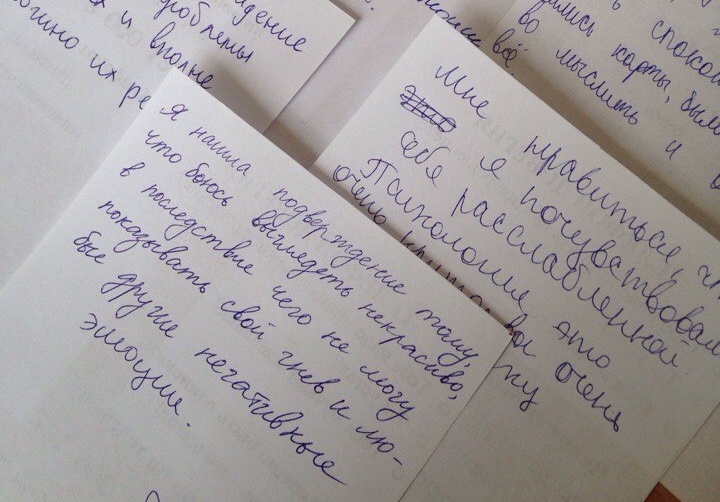 идение
роблемы
и вполне
их ре
Я нашла подверждение тому,
что боюсь выглядеть некрасиво,
в последствие чего не могу
показывать свой гнев и лю-
бые другие негативные
эмоции.
Мне нравиться, чт
это я почувствовал
себя расслабленной
Психология это
очень очень
всё.
спокой
ись карты, был
во мыслить и